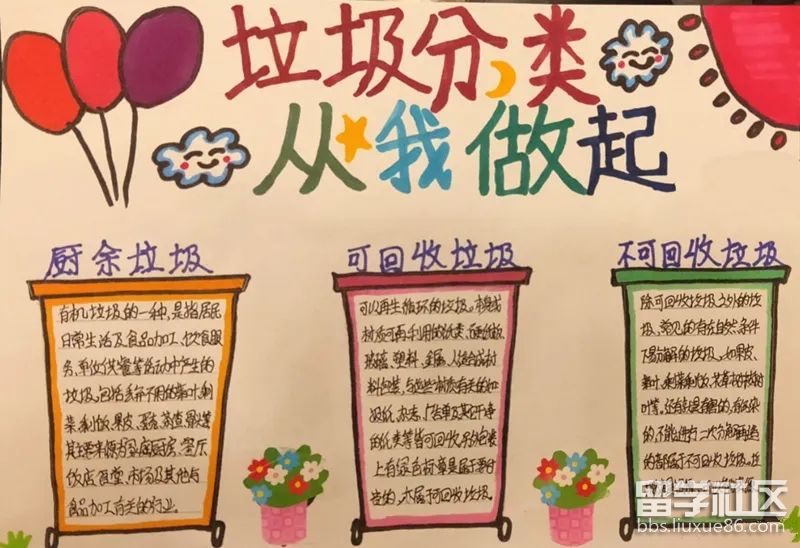 垃圾分类
从我做起
厨余垃圾
有机垃圾的一种,是指居民
日常生活及食品加工、饮食服
务、单位供餐等活动中产生的
垃圾,包括丢弃不用的菜叶、剩
菜、剩饭、果皮、蛋壳、茶渣、骨头等
其主要来源为家庭厨房、餐厅、
饭店、食堂、市场及其他与
食品加工有关的行业。
可回收垃圾
可以再生循环的垃圾。本身或
材质可再利用的纸类、硬纸板、
玻璃、塑料、金属、人造合成材
料包装,与这些材质有关的如
报纸、杂志、广告单及其它干净
的纸类等皆可回收。
上有绿色标章是属于要付
费的,亦属于可回收垃圾。
不可回收垃圾
除可回收垃圾之外的垃
圾,常见的有在自然条件
下易分解的垃圾,如果皮、
菜叶、剩菜剩饭、花草树枝树
叶等,还包括
的,不能进行二次分解再造
的都属于不可回收垃圾。
留学社区
bbs.liuxue86.com